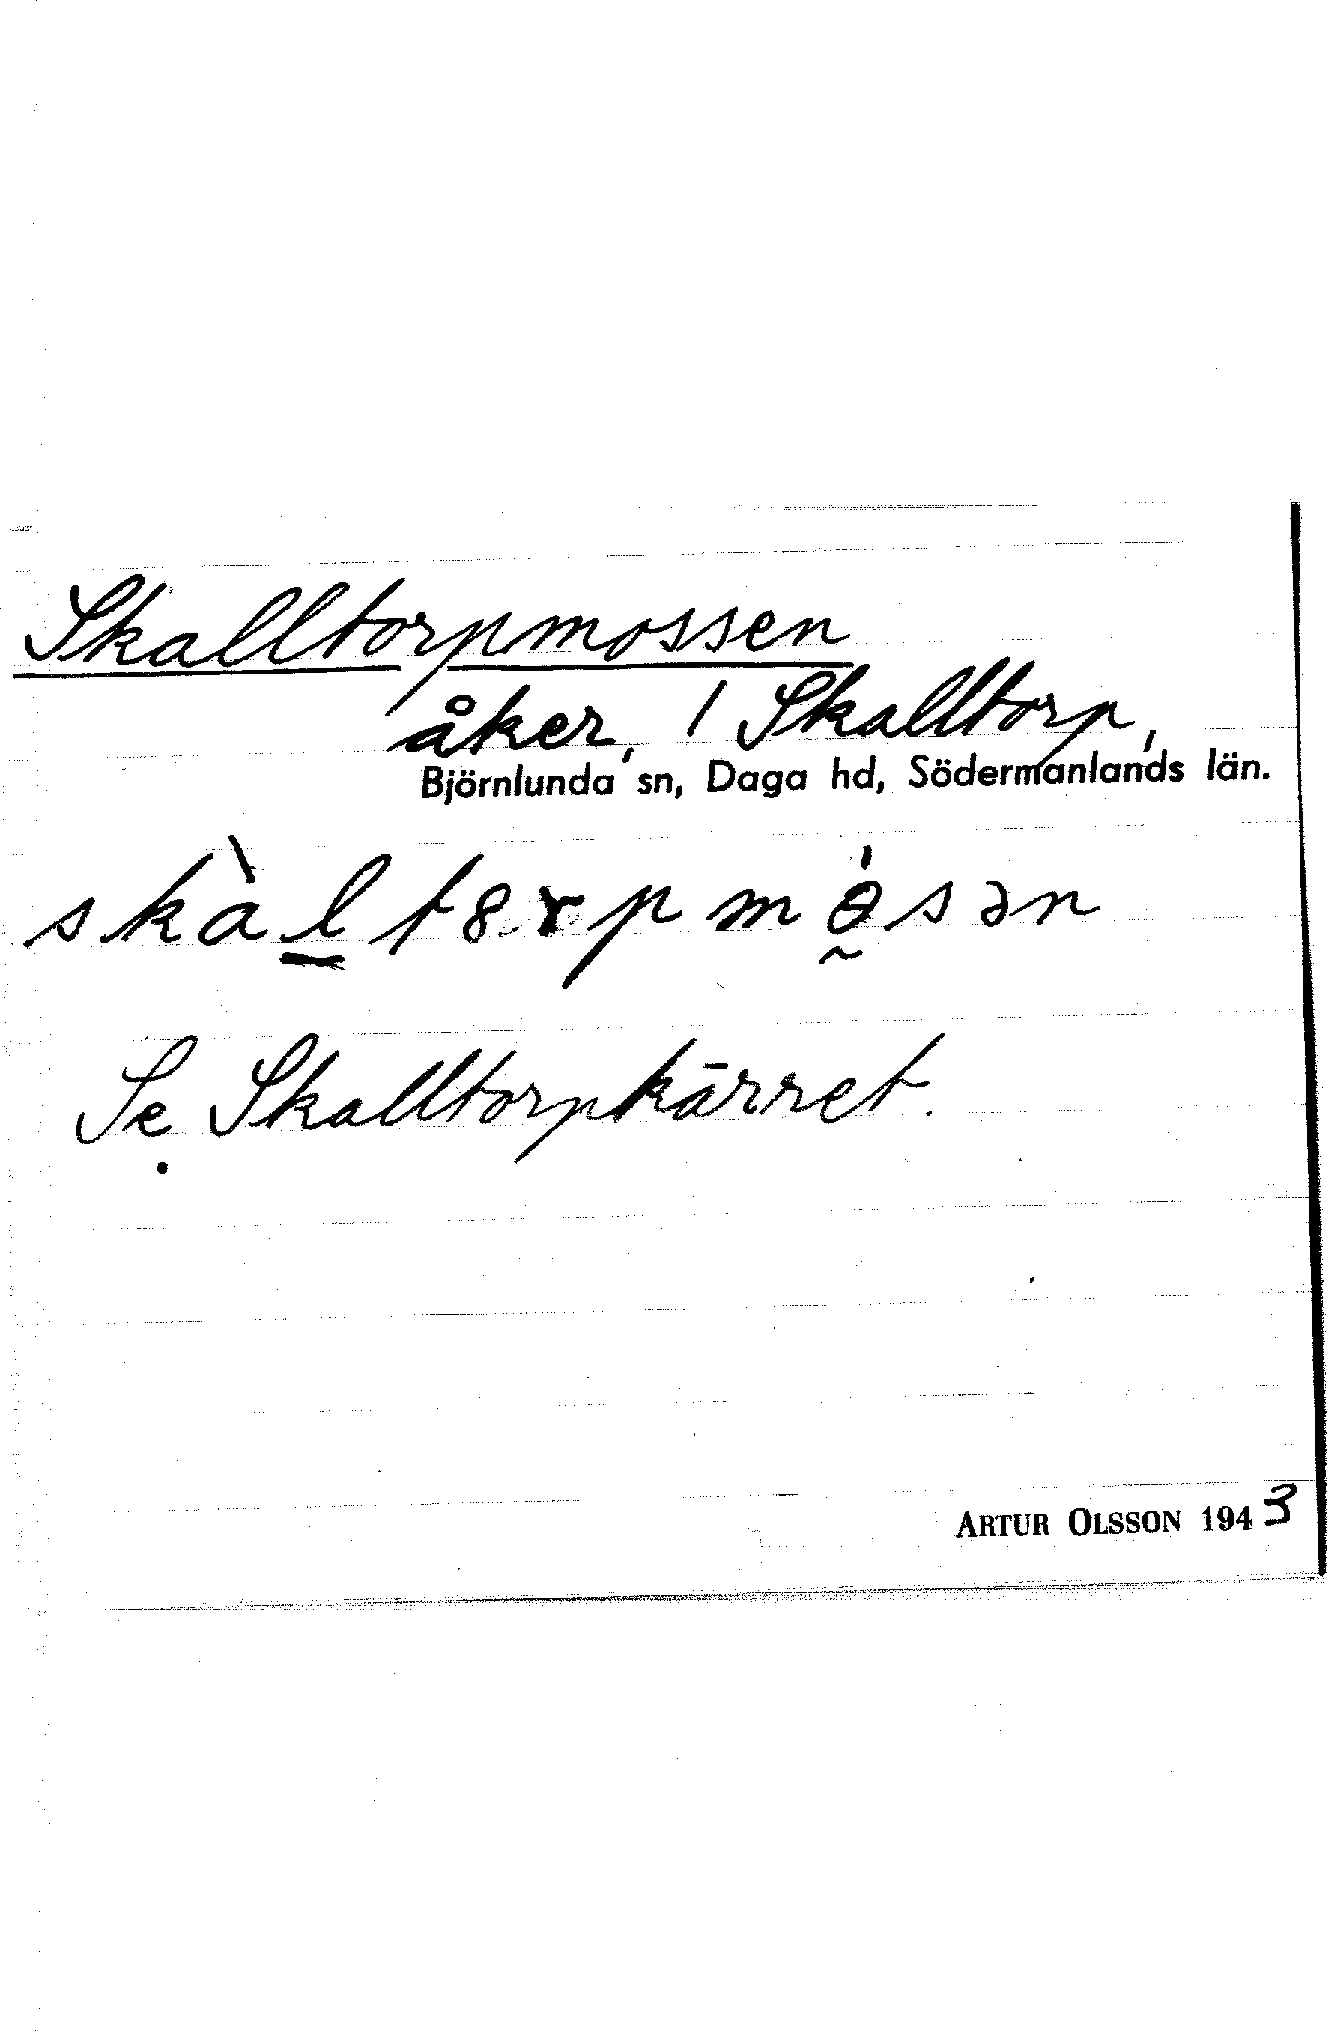 Skalltorpmossen
åker, 1 Skalltorp,
Björnlunda sn, Daga hd, Södermanlands län.
Se Skalltorpkärret.
ARTUR OLSSON 1943